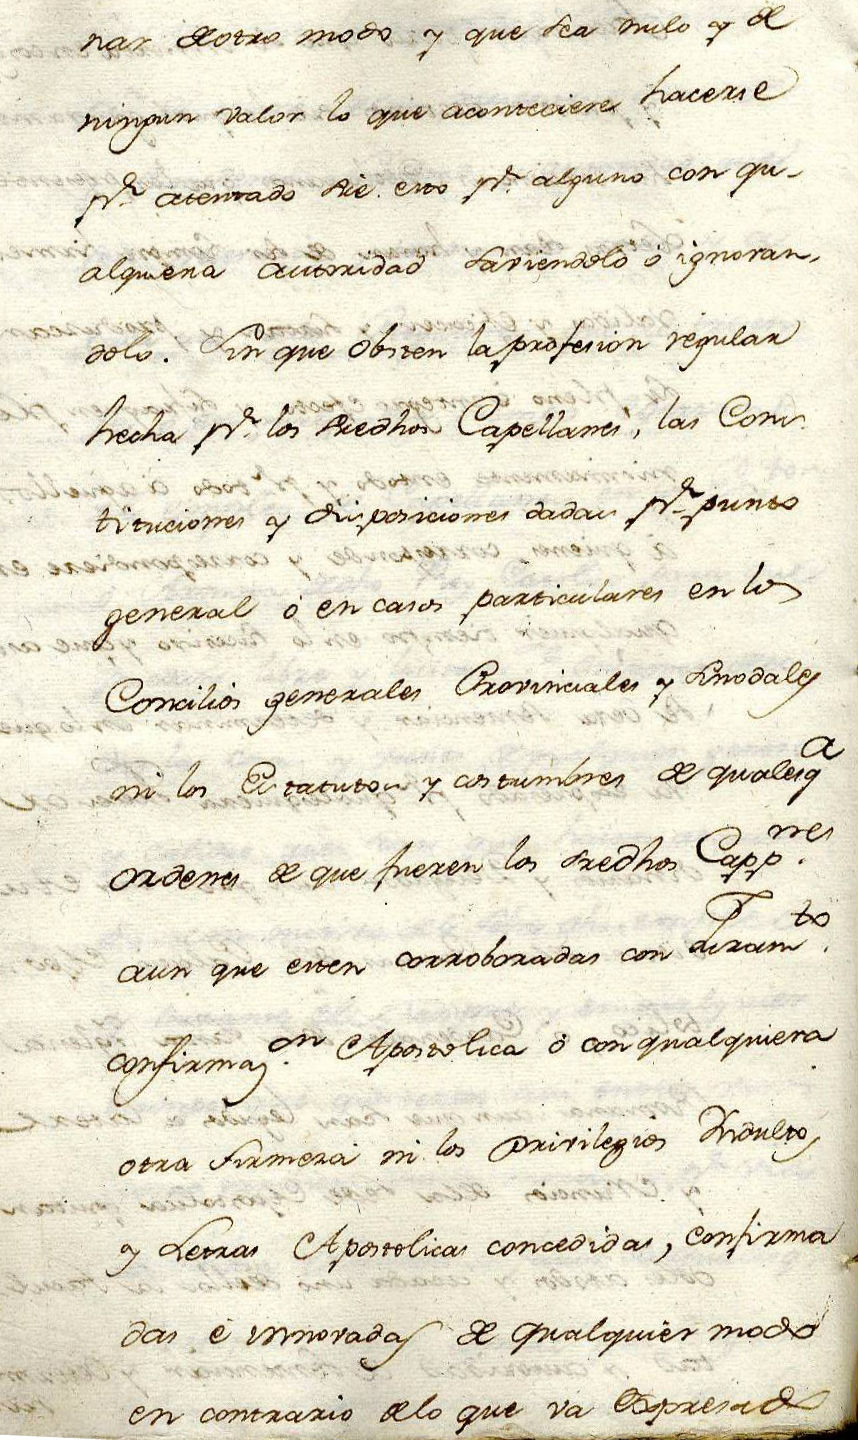 nar de otro modo y que sea nulo y de
ningun valor lo que aconteciere hacerse
pr. atentado sre. esto pr. alguno con qu-
alquiera autoridad saviendolo ó ignoran-
dolo. Sin que obsten la profesion regular
hecha pr. los sredhos Capellanes, las Cons-
tituciones y disposiciones dadas pr. punto
general ó en casos particulares en los
Concilios generales Provinciales y Sinodales
ni los Estatutos y costumbres de qualesqa
ordenes de que fueren los sredhos Cappnes.
aun que esten corroboradas con Juramto.
confirmaon. Apostolica ó con qualquiera
otra firmeza ni los Privilegios Indultos
y Letras Apostolicas concedidas, confirma
das é innovadas de qualquier modo
en contrario delo que va Expresado